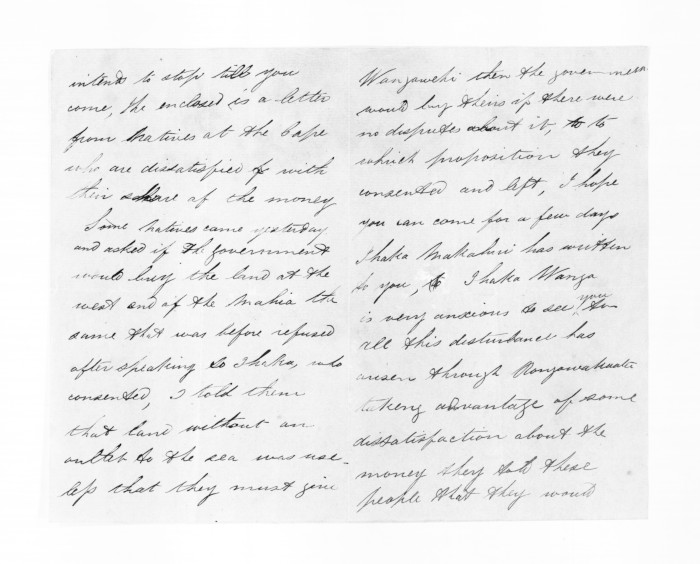 intends to stop till you
come, The enclosed is a letter
from Natives at the Cape
who are dissatisfied with
their share of the money
Some Natives came yesterday
and asked if the government
would buy the land at the
west end of the Mahia the
same that was before refused
after speaking to Ihaka, who
consented, I told them
that land without an
outlet to the sea was use-
less that they must give
Wangawehi then the government
would buy theirs if there were
no disputes about it, to
which proposition they
consented and left, I hope
you can come for a few days
Ihaka Makahuri has written
to you, Ihaka Wanga
is very anxious to see you
all this disturbance has
arisen through
taking advantage of some
dissatisfaction about the
money they told these
people that they would